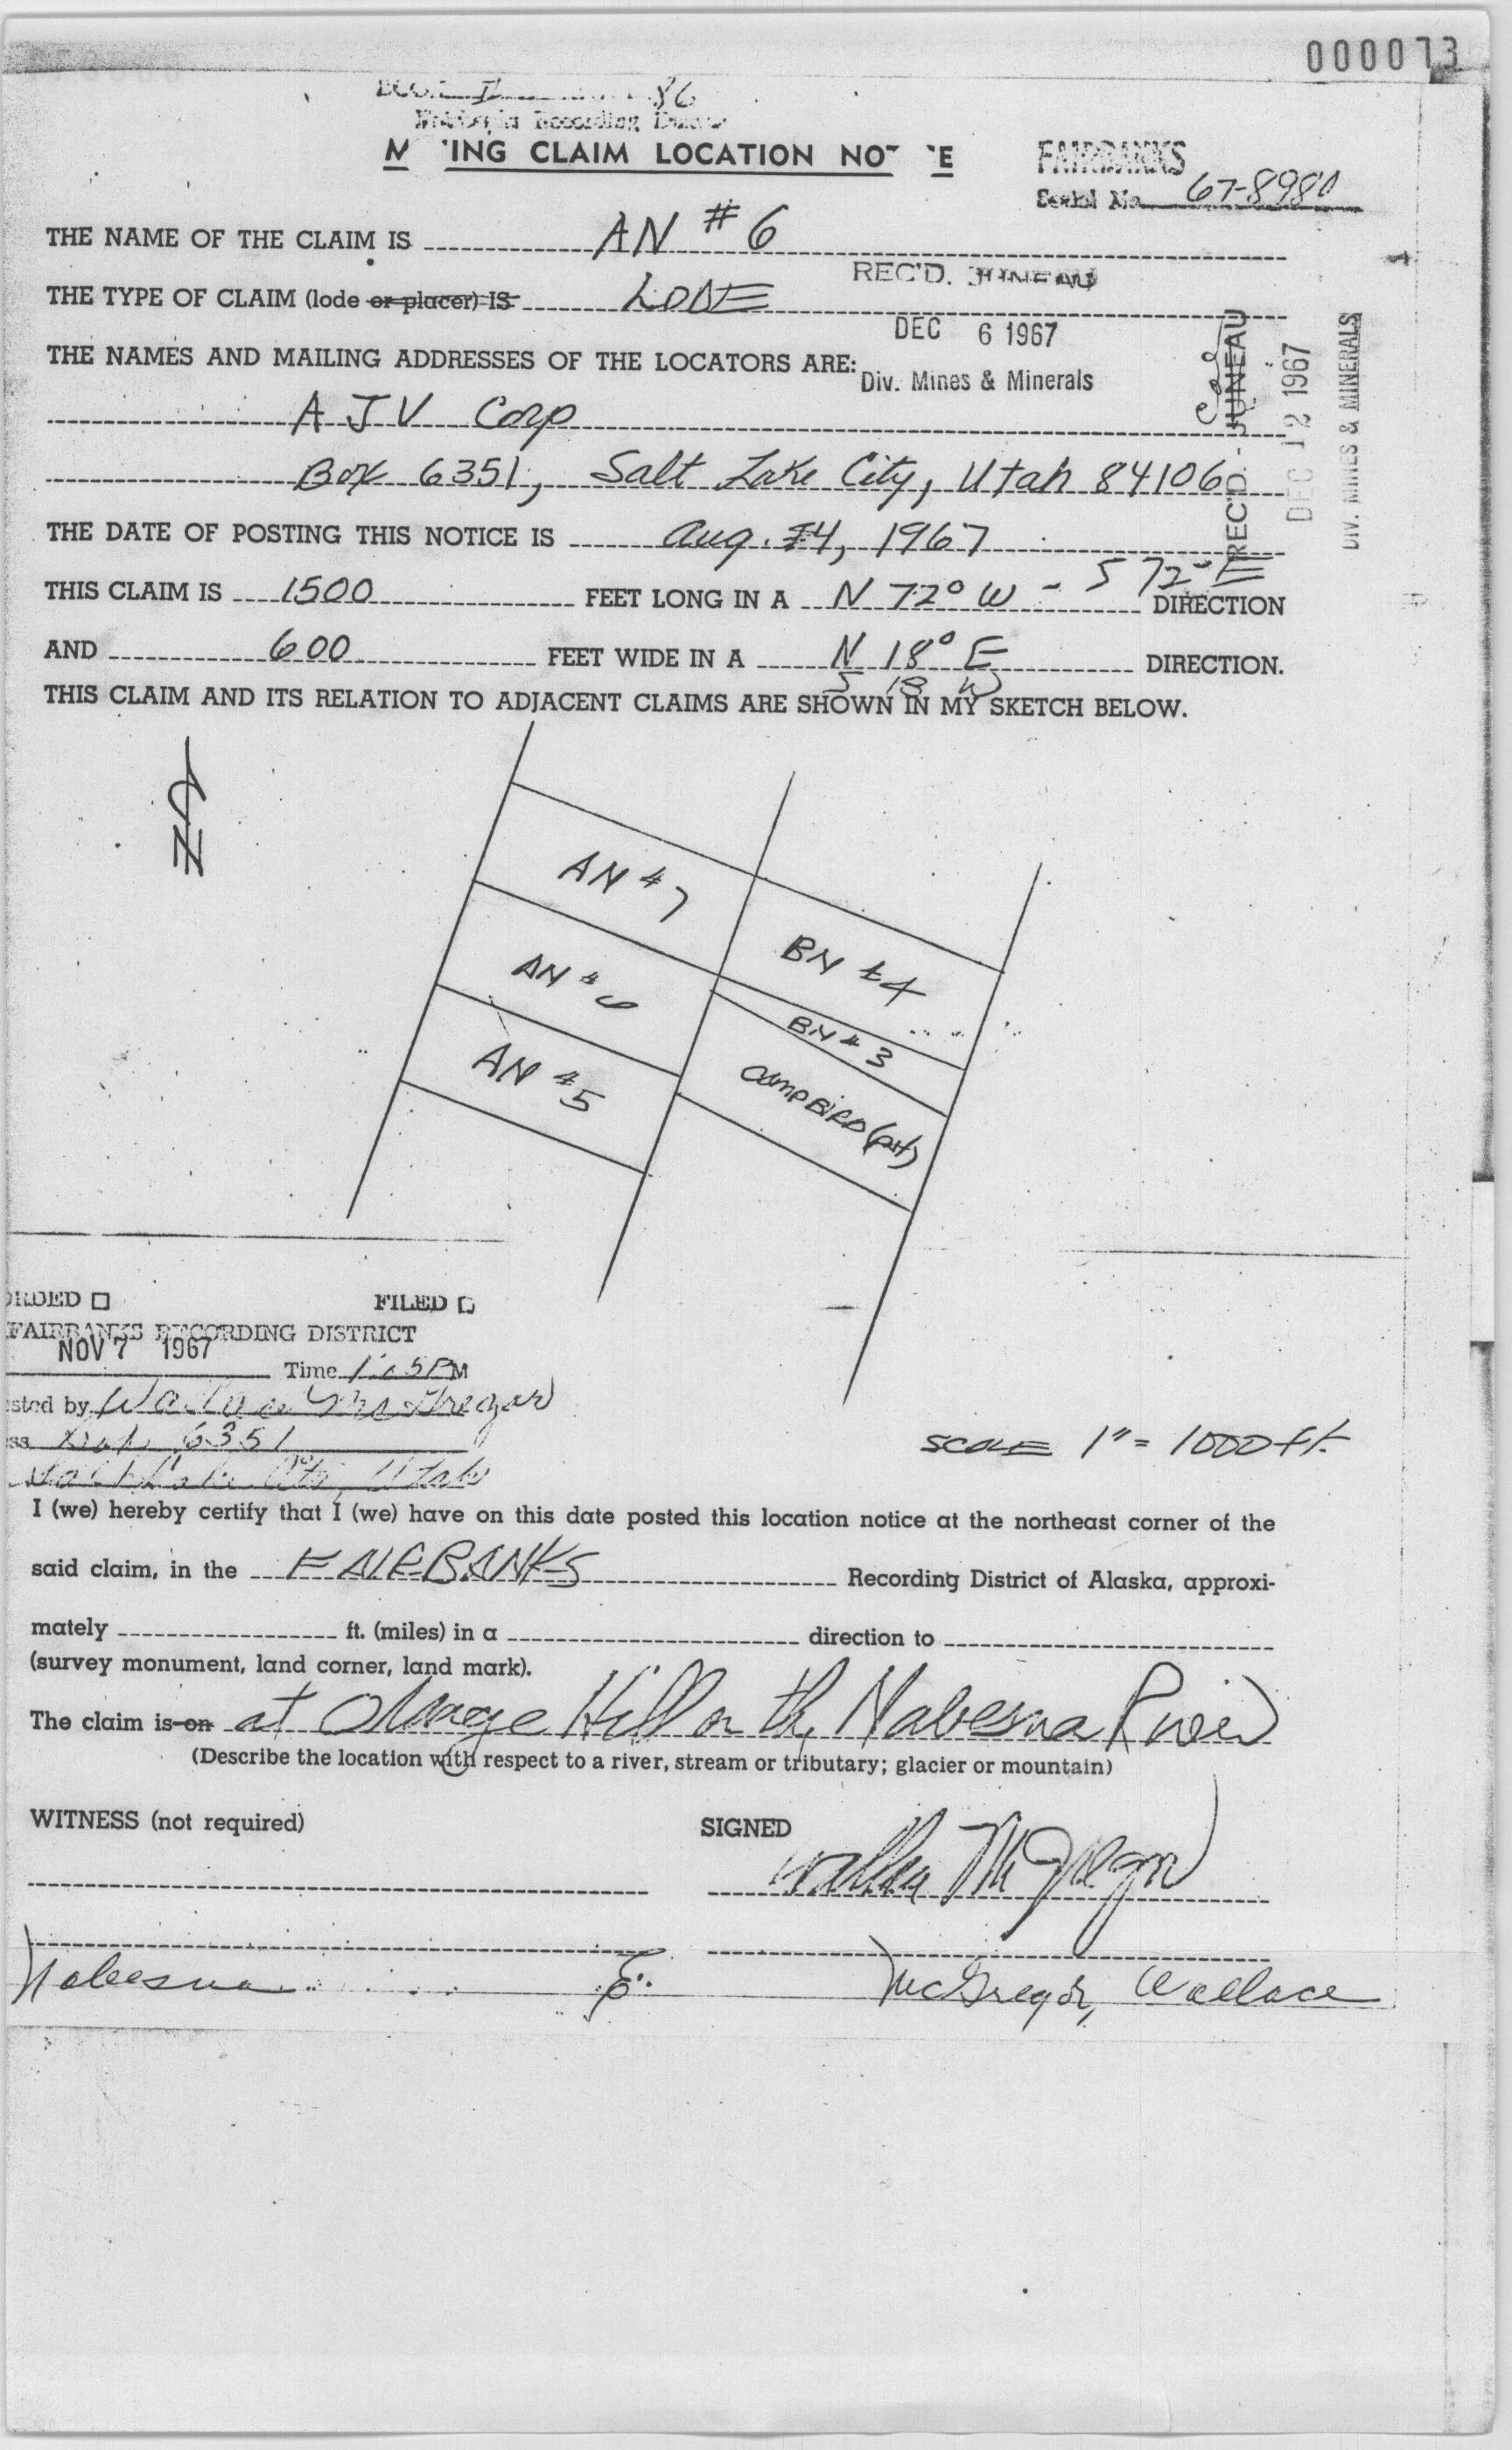 000073
86
Recording
M ING CLAIM LOCATION NOT E
FAIRBANKS
Serial No. 67-8980
THE NAME OF THE CLAIM IS AN #6
REC'D. JUNEAU
THE TYPE OF CLAIM (lode or placer) IS LODE
DEC 6 1967
THE NAMES AND MAILING ADDRESSES OF THE LOCATORS ARE:
Div. Mines & Minerals
A J V Corp
Box 6351, Salt Lake City, Utah 84106
REC'D. JUNEAU
DEC 12 1967
DIV. MINES & MINERALS
THE DATE OF POSTING THIS NOTICE IS Aug. 14, 1967
THIS CLAIM IS 1500 FEET LONG IN A N 72° W - S 72° E DIRECTION
AND 600 FEET WIDE IN A N 18° E DIRECTION.
S 18 W
THIS CLAIM AND ITS RELATION TO ADJACENT CLAIMS ARE SHOWN IN MY SKETCH BELOW.
N
AN #7
BN #4
AN #6
BN #3
AN #5
CAMP BIRD (pat)
ORDED FILED
FAIRBANKS RECORDING DISTRICT
NOV 7 1967
Time 1:05 PM
sted by Wallace McGregor
ss Box 6351
Salt Lake City, Utah
SCALE 1" = 1000 ft.
I (we) hereby certify that I (we) have on this date posted this location notice at the northeast corner of the
said claim, in the FAIRBANKS Recording District of Alaska, approxi-
mately ft. (miles) in a direction to
(survey monument, land corner, land mark).
The claim is on at Orange Hill on the Nabesna River
(Describe the location with respect to a river, stream or tributary; glacier or mountain)
WITNESS (not required) SIGNED
Wallace McGregor
Nabesna E McGregor, Wallace